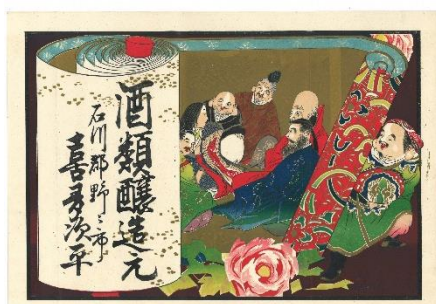 酒類釀造元
石川郡野々市
喜多次平